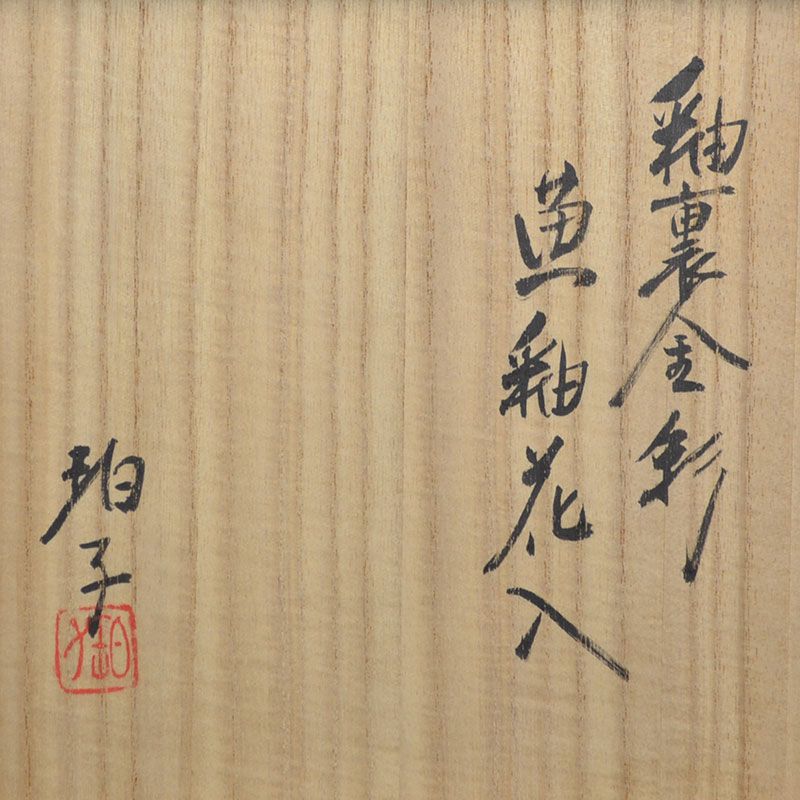 釉裏金彩
黄釉花入
珀子